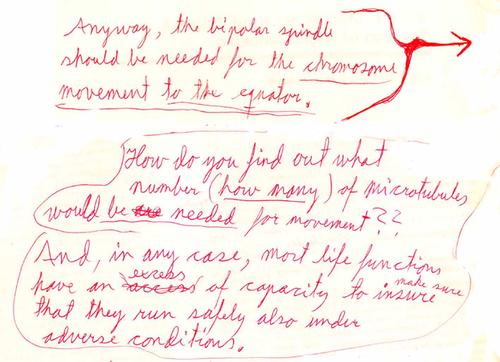 Anyway, the bipolar spindle
should be needed for the chromosome
movement to the equator.
How do you find out what
number (how many) of microtubules
would be needed for movement??
And, in any case, most life functions
have an excess of capacity to insure make sure
that they run safely also under
adverse conditions.